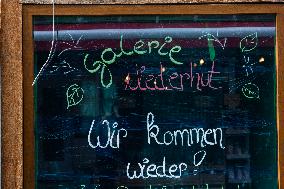 Galerie
wiederhut
Wir kommen
wieder!